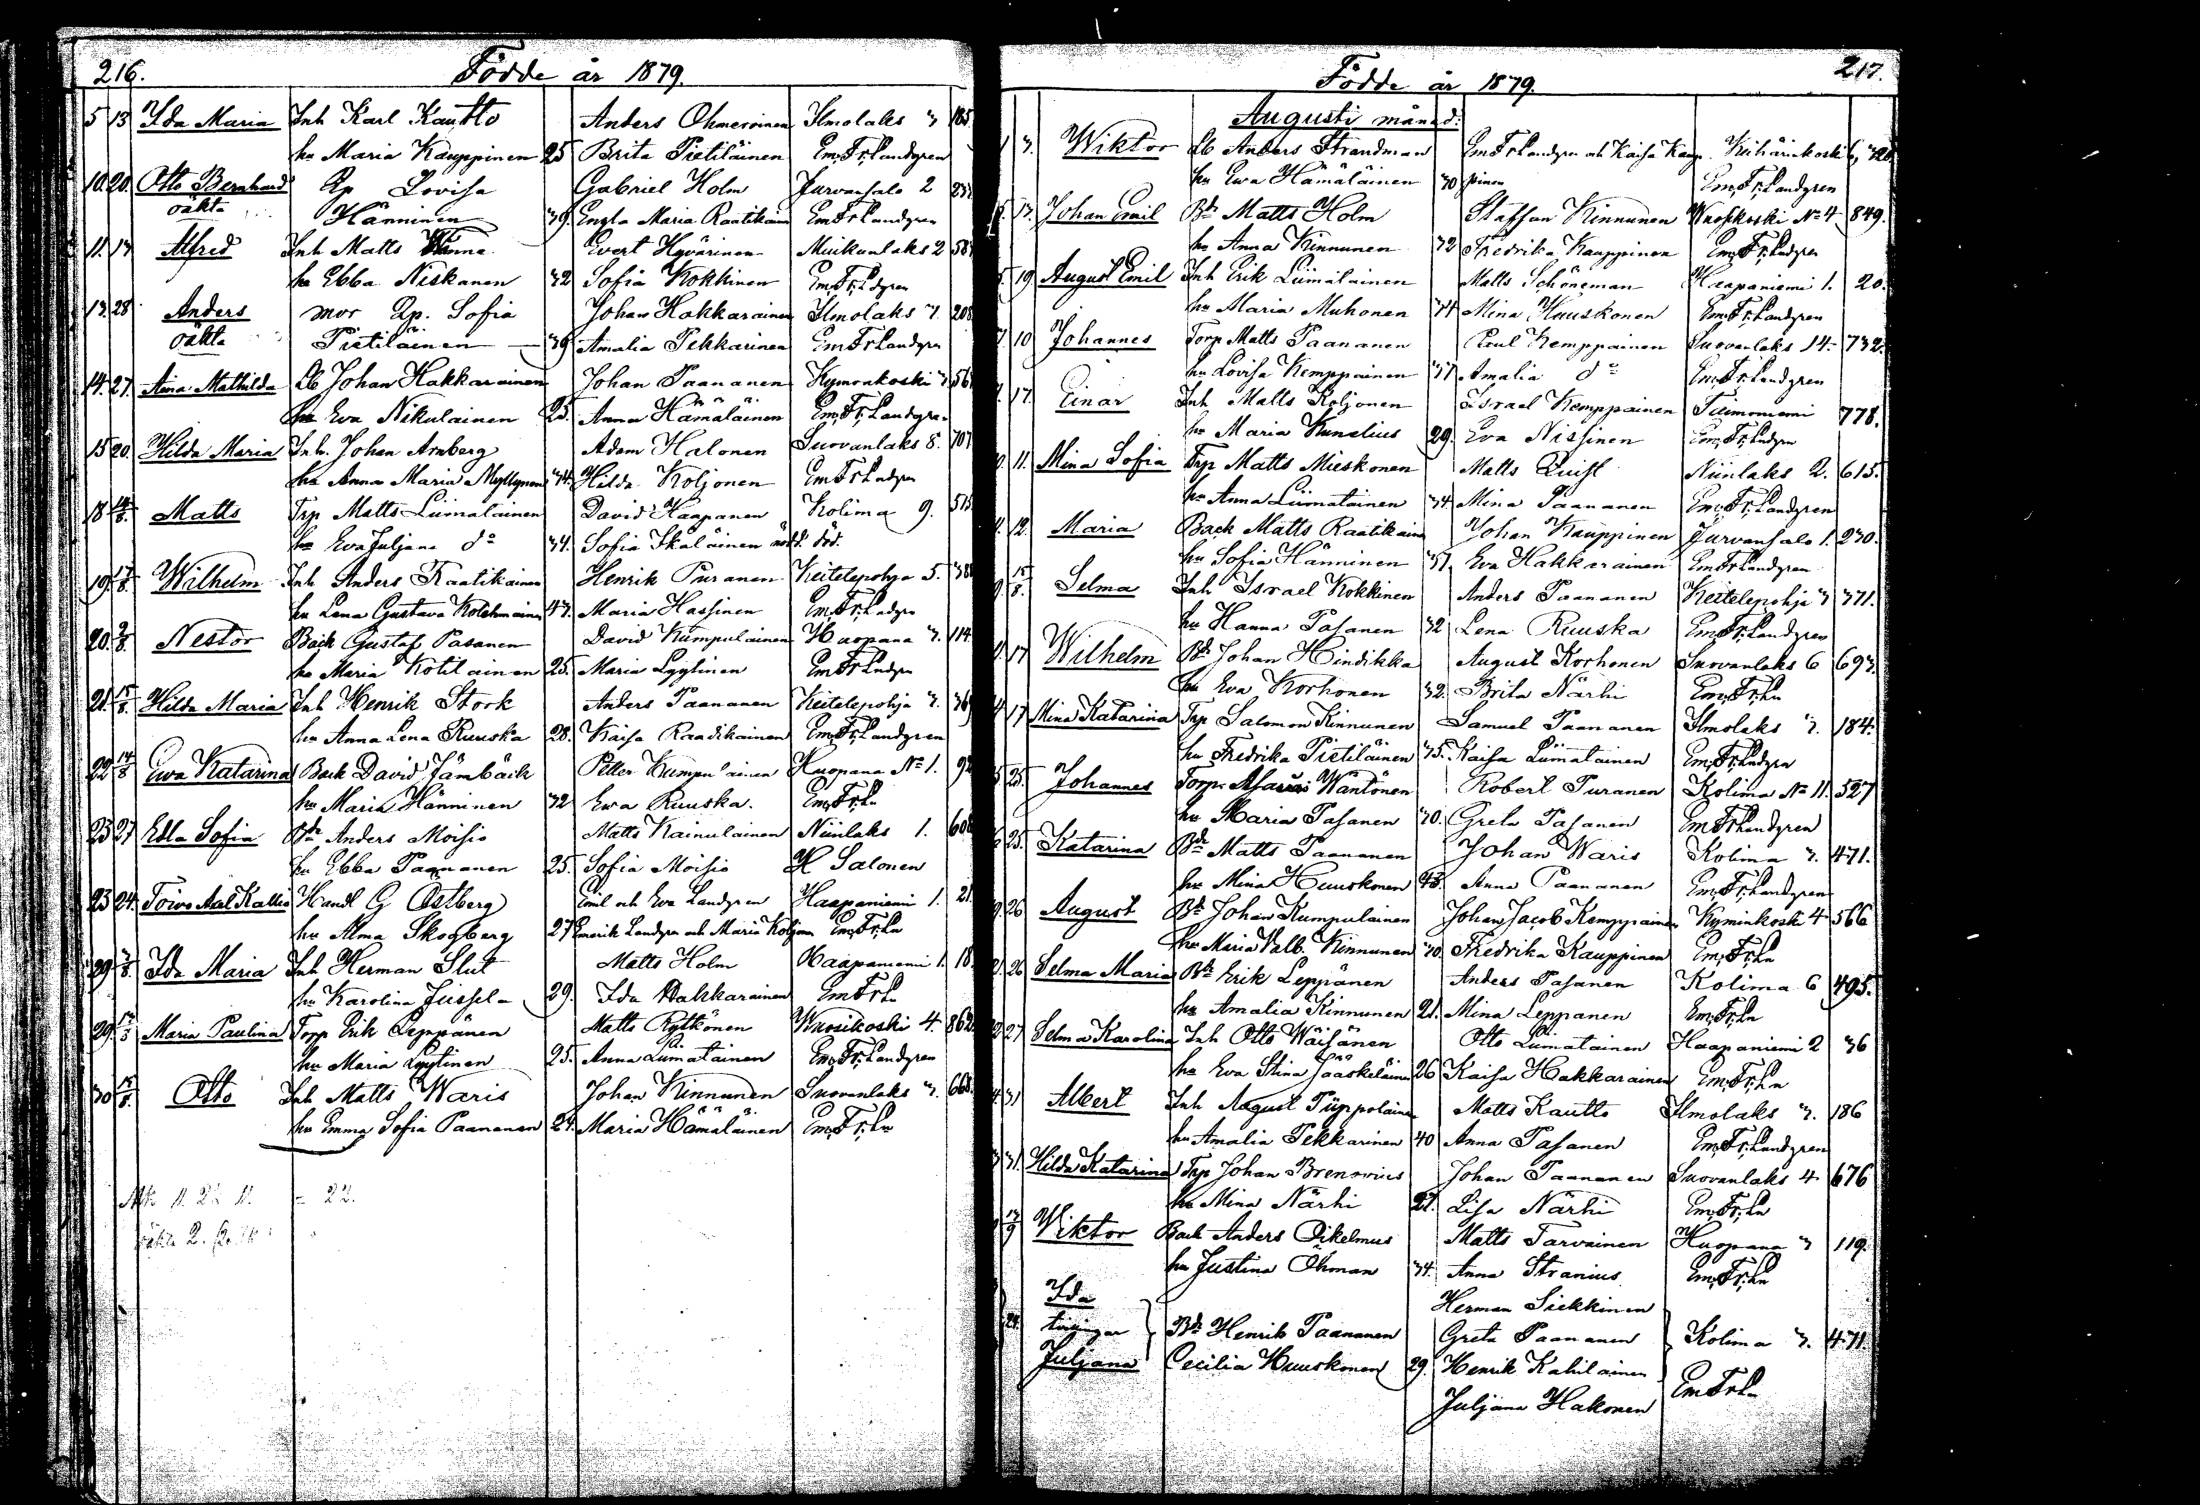 216. Födde år 1879.
5 13 Ida Maria Inh Karl Kautto Anders Ohmeroinen Ilmolaks 3 185
hu Maria Kauppinen 25 Brita Pietiläinen Em. Fr. Landgren
10 20. Otto Bernhard Qp Lovisa Gabriel Holm Jurvansalo 2
oäkta Hänninen 39. Engla Maria Raatikain Em Fr Landgren
11. 17 Alfred Inh Matts Evert Hyvärinen Muikunlaks 2
hu Ebba Niskanen 32 Sofia Kokkinen Em. Fr. Ldgren
13. 28 Anders mor Qp. Sofia Johan Hakkarainen Ilmolaks 7. 208
oäkta Pietiläinen 39 Amalia Pekkarinen Em Fr Landgren
14. 27. Anna Mathilda Lb Johan Hakkarainen Johan Paananen Kymönkoski 3
hu Eva Nikulainen 25. Anna Hämäläinen Em. Fr. Landgren
15 20. Hilda Maria Inh. Johan Arnberg Adam Halonen Suovanlaks 8. 707
hu Anna Maria Myllynen 34. Hilda Koljonen Em Fr Landgren
18 14/8. Matts Trp Matts Liimatainen David Haapanen Kolima 9. 515
hu Eva Juljana do 34. Sofia Ikäläinen nödd. död.
19. 17/8. Wilhelm Inh Anders Raatikainen Henrik Puranen Keitelepohja 5.
hu Lena Gustava Kolehmainen 43. Maria Hassinen Em. Fr. Landgren
20. 9/8. Nestor Back Gustaf Pasanen David Kumpulainen Huopana 3. 114
hu Maria Kotilainen 25. Maria Lyytinen Em Fr Landgren
21. 15/8. Hilda Maria Inh Henrik Stork Anders Paananen Keitelepohja 3. 369
hu Anna Lena Ruuska 28. Kaisa Raadikainen Em. Fr. Landgren
22 14/8 Ewa Katarina Back David Jämbäck Petter Kumpulainen Huopana No 1.
hu Maria Hänninen 32 Ewa Ruuska. Em. Fr. Ln
23 27 Edla Sofia Bde Anders Moisio Matts Kainulainen Niinlaks 1.
hu Ebba Paananen 25. Sofia Moisio H Salonen
23 24. Toivo Axel Kallio Handl G Östberg Emil och Eva Landgren Haapaniemi 1. 21
hu Alma Skogberg 27 Emerik Landgren och Maria Koljonen Em. Fr. Ln
29 3/8. Ida Maria Inh Herman Slut Matts Holm Haapaniemi 1. 18.
hu Karolina Jussela 29. Ida Hakkarainen Em Fr Ln
29. Maria Paulina Torp Erik Leppänen Matts Rytkönen Wuosikoski 4. 862
hu Maria Lyytinen 25. Anna Liimatainen Em. Fr. Landgren
30 15/8. Otto Inh Matts Waris Johan Kinnunen Suovanlaks 3. 668.
hu Emma Sofia Paananen 24. Maria Hämäläinen Em. Fr. Ln
Mk 11. 22. 11. = 22.
oäkta 2.
217.
Födde år 1879.
Augusti månad:
1 3. Wiktor Lb Anders Strandman Em Fr Landgren och Kaisa Kaup Keihärinkoski 6,
hu Ewa Hämäläinen 30 pinen Em. Fr. Landgren
13. Johan Emil Bde Matts Holm Staffan Kinnunen Wuoskoski No 4 849.
hu Anna Kinnunen 32 Fredrika Kauppinen Em. Fr. Landgren
5. 19 August Emil Inh Erik Liimatainen Matts Schöneman Haapaniemi 1. 20.
hu Maria Muhonen 34 Mina Huuskonen Em. Fr. Landgren
7. 10 Johannes Torp Matts Paananen Paul Kemppainen Suovanlaks 14. 732.
hu Lovisa Kemppainen 37 Amalia do Em. Fr. Landgren
17. Einar Inh Matts Koljonen Israel Kemppainen Tuimoniemi 778.
hu Maria Kunelius 29. Eva Nissinen Em. Fr. Landgren
11. Mina Sofia Trp Matts Mieskonen Matts Quist Niinlaks 2. 615.
hu Anna Liimatainen 34 Mina Paananen Em. Fr. Landgren
12. Maria Back Matts Raatikain Johan Kauppinen Jurvansalo 1. 230.
hu Sofia Hänninen 37. Eva Hakkarainen Em Fr Landgren
15/8. Selma Inh Israel Kokkinen Anders Paananen Keitelepohja 3 371.
hu Hanna Pasanen 32 Lena Ruuska Em. Fr. Landgren
17 Wilhelm Bde Johan Hindikka August Korhonen Suovanlaks 6 693.
hu Eva Korhonen 32. Brita Närhi Em. Fr. Ln
17 Mina Katarina Trp Salomon Kinnunen Samuel Paananen Ilmolaks 3. 184.
hu Fredrika Pietiläinen 35. Kaisa Liimatainen Em. Fr. Landgren
25. Johannes Torp. Asarias Wäntönen Robert Puranen Kolima No 11. 527
hu Maria Pasanen 30. Greta Pasanen Em Fr Landgren
25. Katarina Bde Matts Paananen Johan Waris Kolima 3. 471.
hu Mina Huuskonen 43. Anna Paananen Em. Fr. Landgren
26 August Bde Johan Kumpulainen Johan Jacob Kemppainen Kyminkoski 4 566
hu Maria Valb. Kinnunen 30. Fredrika Kauppinen Em. Fr. Ln
26 Selma Maria Bde Erik Leppänen Anders Pasanen Kolima 6 495.
hu Amalia Kinnunen 21. Mina Leppanen Em. Fr. Ln
27 Selma Karolina Inh Otto Wäisänen Otto Liimatainen Haapaniemi 2 36
hu Eva Stina Jääskeläinen 26 Kaisa Hakkarainen Em. Fr. Ln
31 Albert Inh August Piippolainen Matts Kautto Ilmolaks 3. 186
hu Amalia Pekkarinen 40 Anna Pasanen Em. Fr. Landgren
31. Hilda Katarina Trp Johan Brenovius Johan Paananen Suovanlaks 4 676
hu Mina Närhi 27. Lisa Närhi Em. Fr. Ln
13/9 Wiktor Back Anders Oikelmus Matts Tarvainen Huopana 3 119.
hu Justina Öhman 34. Anna Stranius Em. Fr. Ln
Ida Herman Siekkinen
24. tvillingar Bde Henrik Paananen Greta Paananen Kolima 3. 471.
Juljana Cecilia Huuskonen 29. Henrik Kahilainen
Juljana Hakonen Em Fr Ln